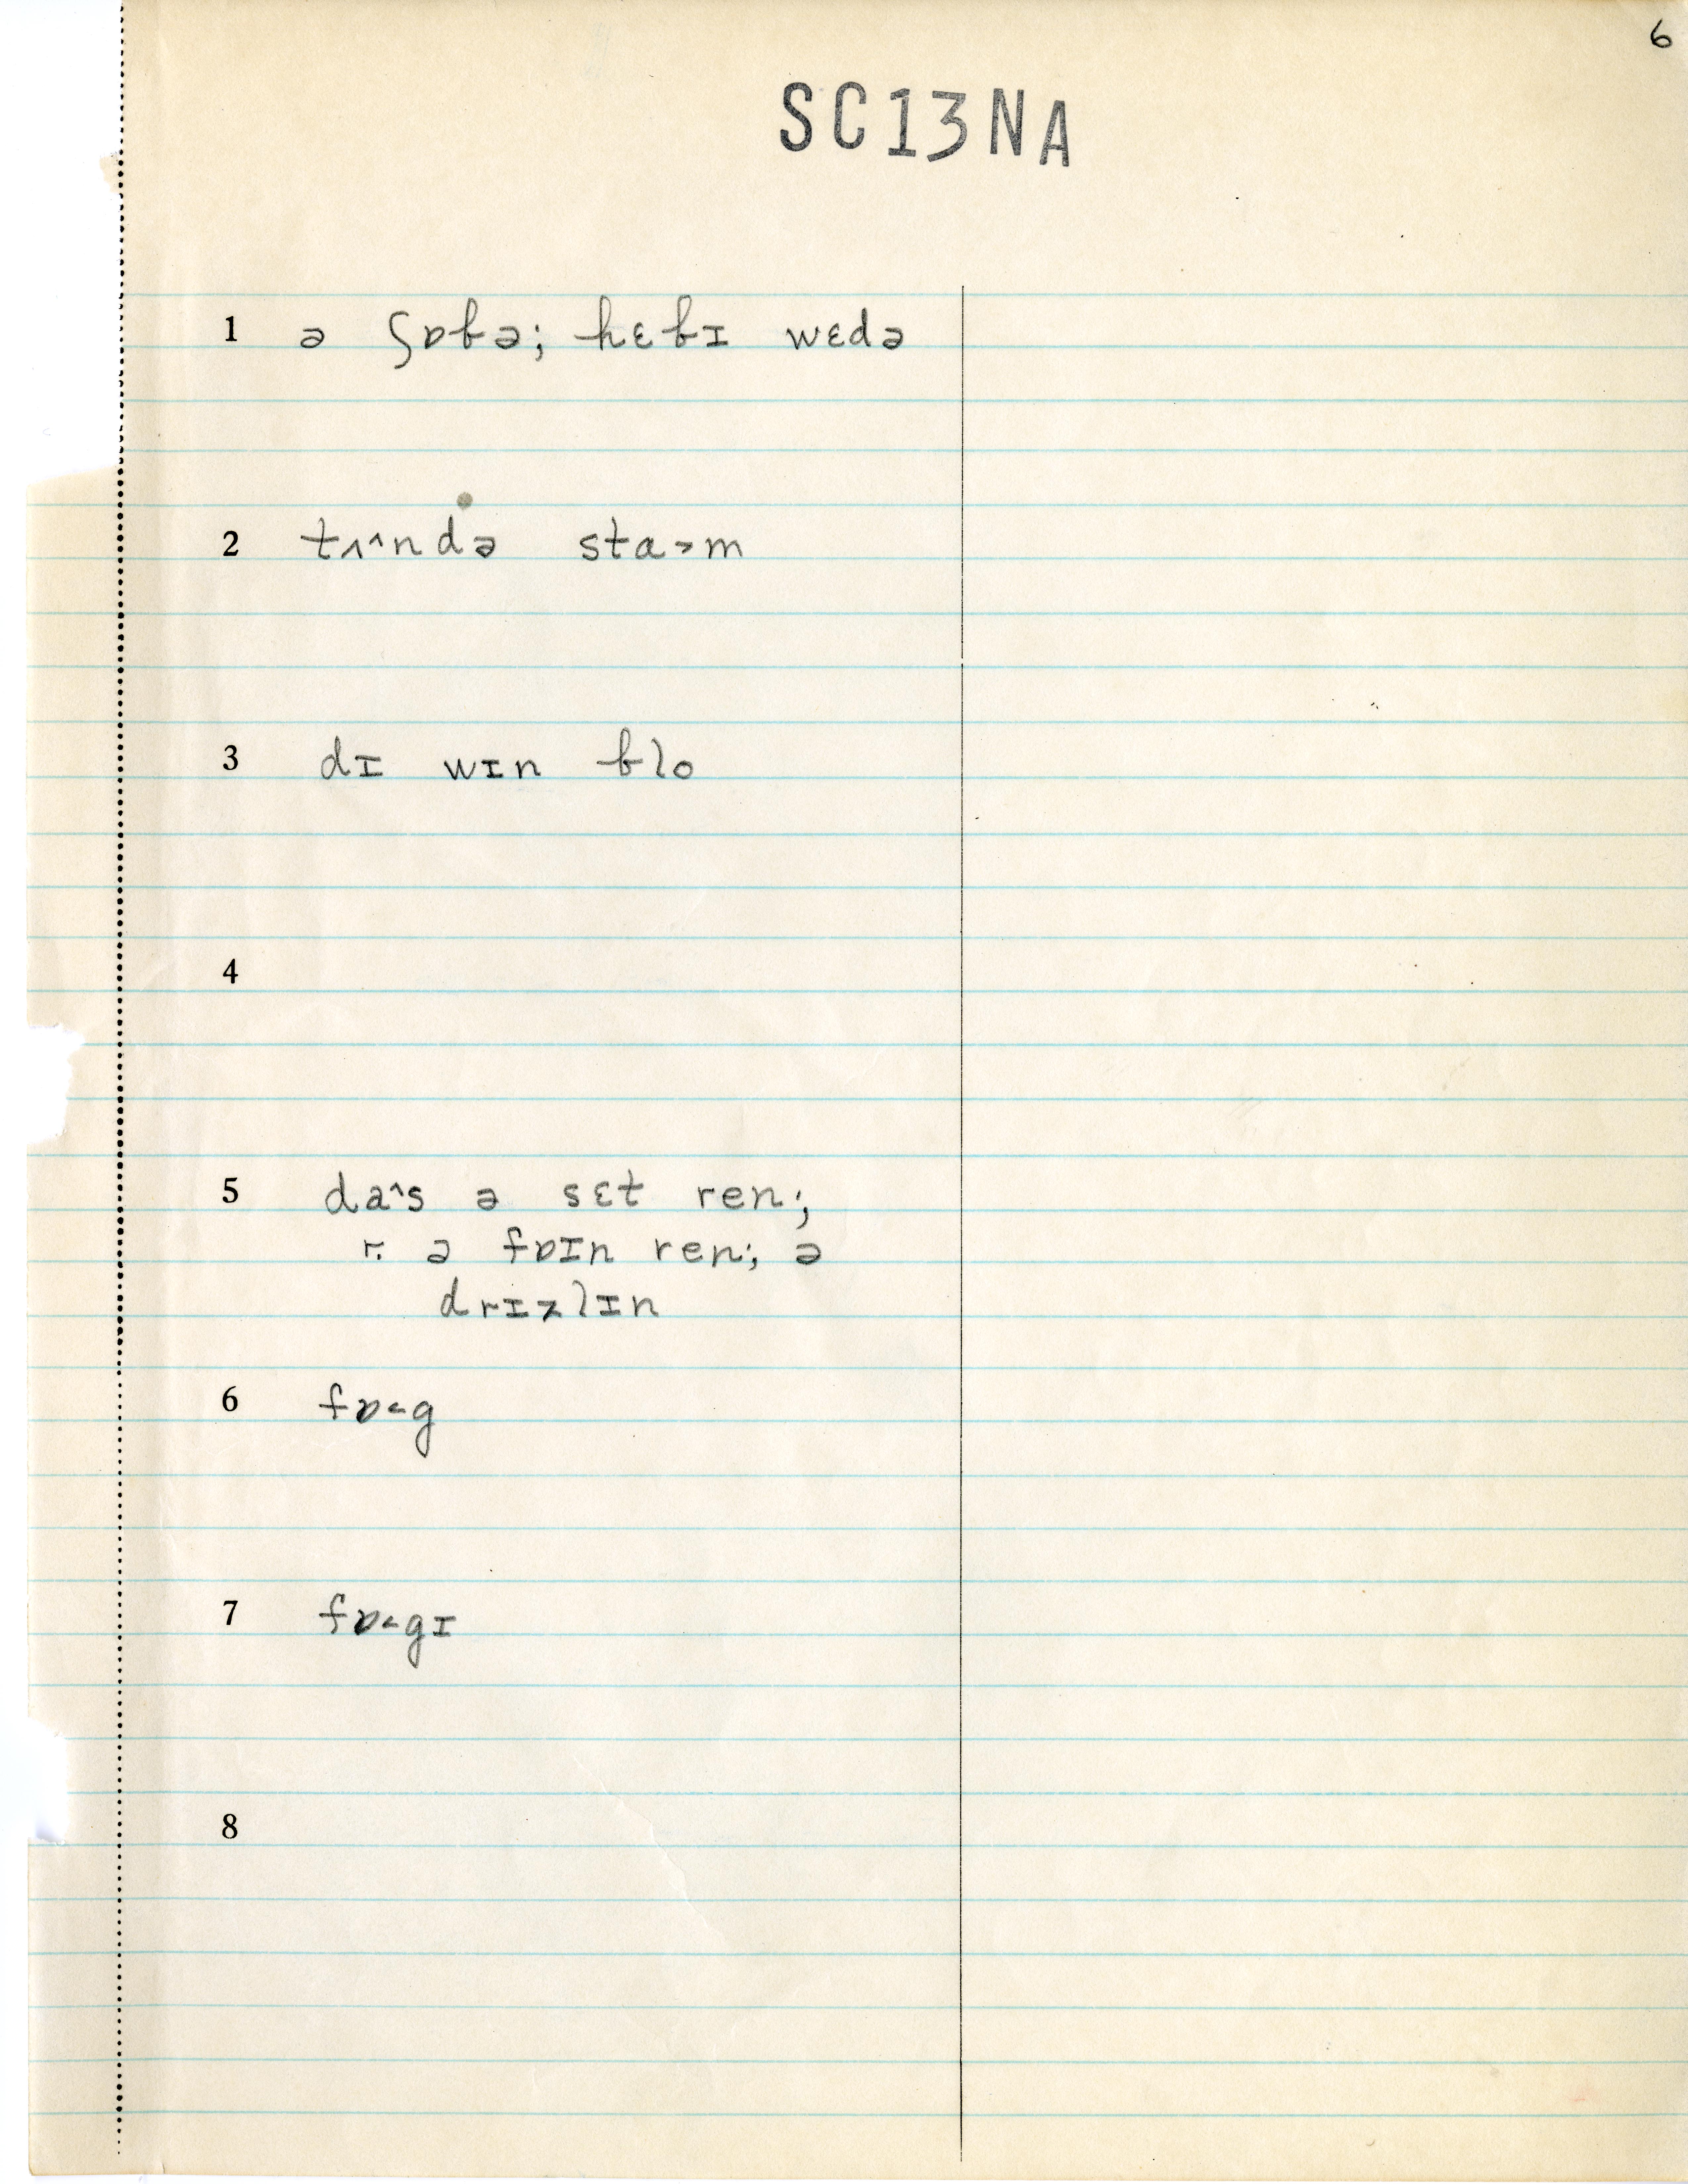 6
SC13NA
1 ə ʃɒbə; hɛbɪ wɛdə
2 tʌ^ndə sta>m
3 dɪ wɪn blo
4
5 da^s ə sɛt ren;
r. ə fɒɪn ren; ə
drɪzlɪn
6 fɒ<g
7 fɒ<gɪ
8